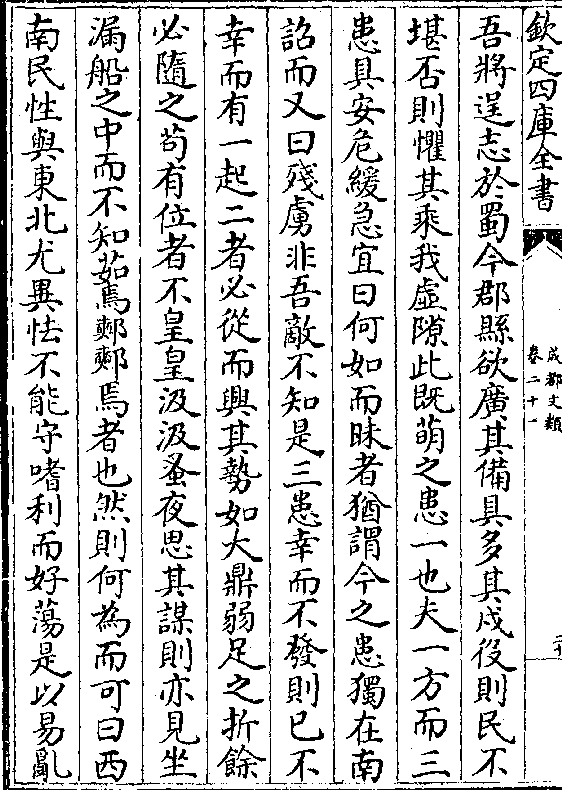 欽定四庫全書
成都文類
卷二十一
吾將逞志於蜀今郡縣欲廣其備具多其戍役則民不
堪否則懼其乘我虛隙此既萌之患一也夫一方而三
患具安危緩急宜曰何如而昧者猶謂今之患獨在南
詔而又曰殘虜非吾敵不知是三患幸而不發則已不
幸而有一起二者必從而興其勢如大鼎弱足之折餘
必隨之茍有位者不皇皇汲汲蚤夜思其謀則亦見坐
漏船之中而不知茹焉鄭鄭焉者也然則何為而可曰西
南民性與東北尤異怯不能守嗜利而好蕩是以易亂